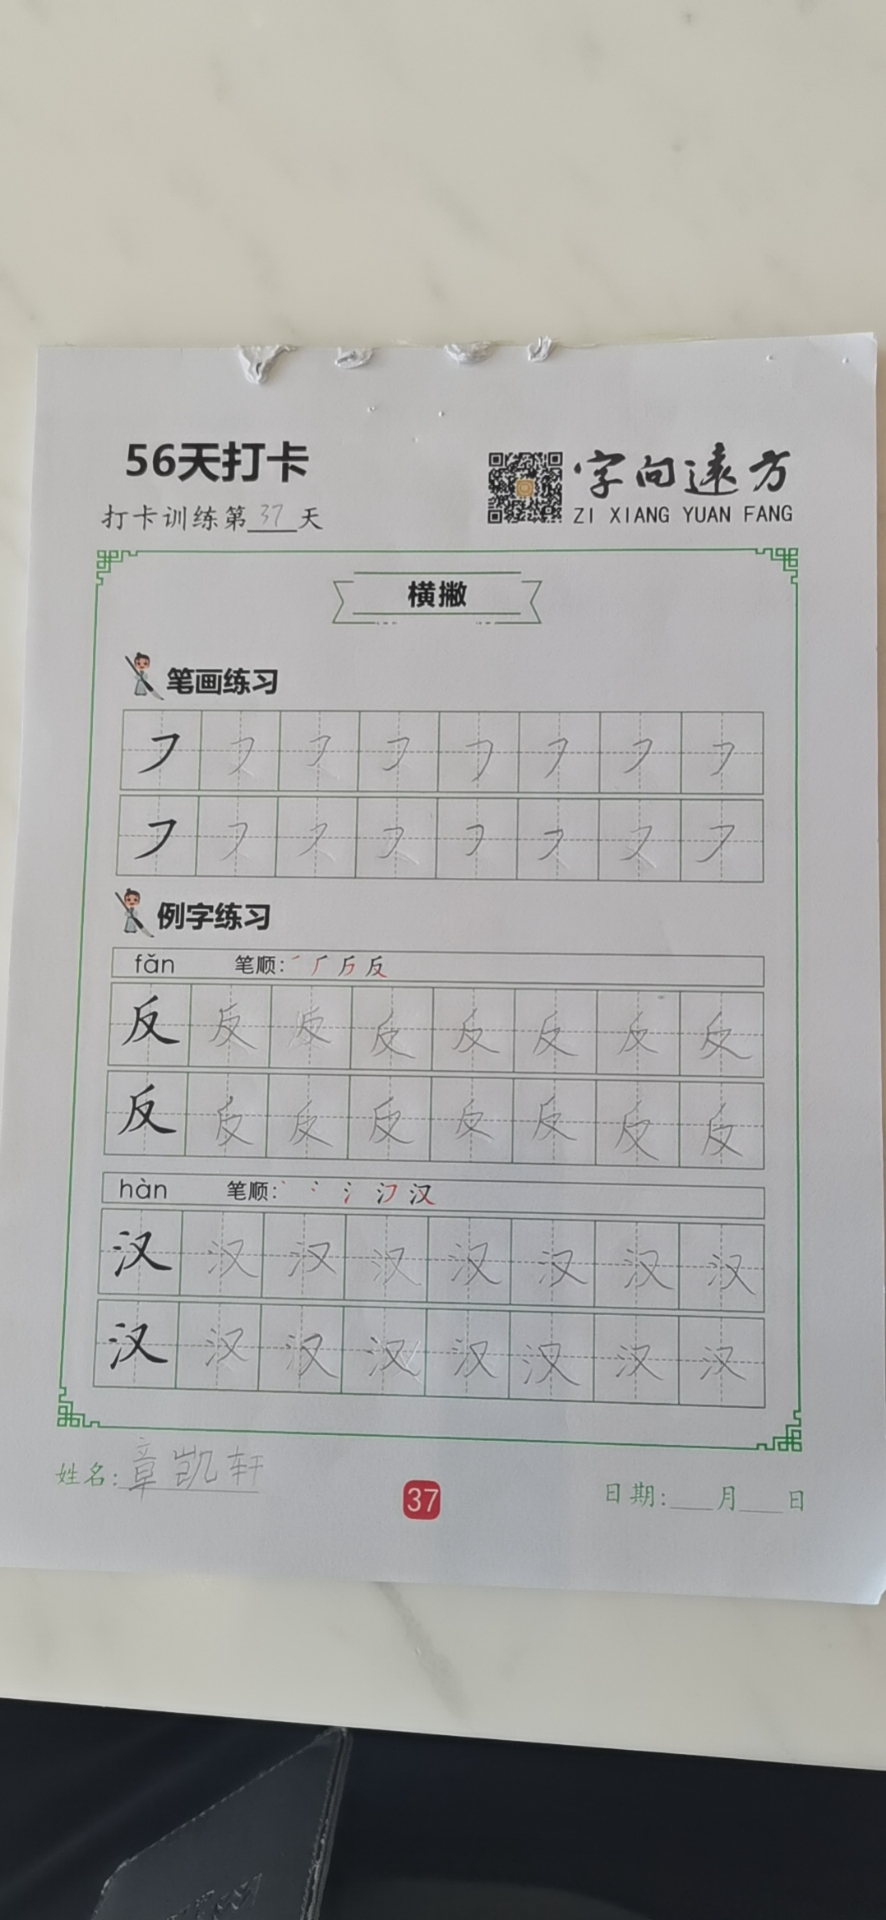 56天打卡
打卡训练第37天
字向远方
ZI XIANG YUAN FANG
横撇
笔画练习
㇇ ㇇ ㇇ ㇇ ㇇ ㇇ ㇇ ㇇
㇇ ㇇ ㇇ ㇇ ㇇ ㇇ ㇇ ㇇
例字练习
fǎn 笔顺: 反
反 反 反 反 反 反 反 反
反 反 反 反 反 反 反 反
hàn 笔顺: 汉
汉 汉 汉 汉 汉 汉 汉 汉
汉 汉 汉 汉 汉 汉 汉 汉
姓名:章凯轩
37
日期:___月___日